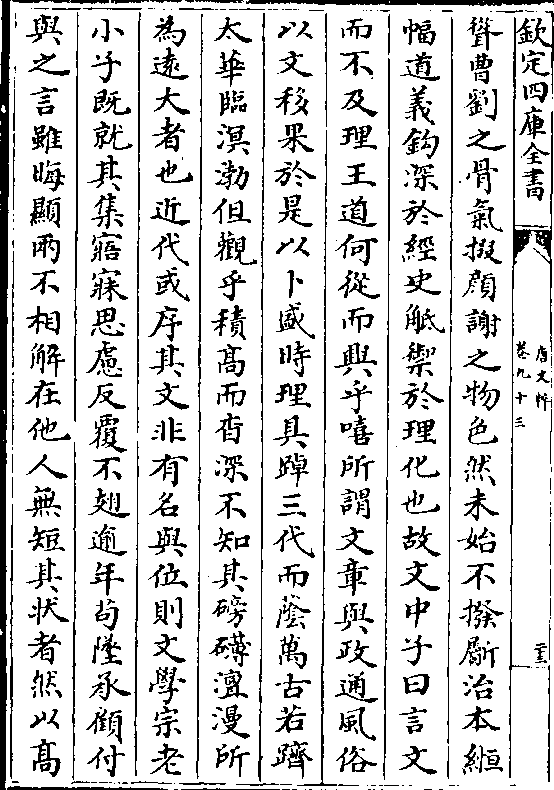 欽定四庫全書
唐文粹
卷九十三
聳曹劉之骨氣掇顔謝之物色然未始不撥斸治本絙
幅道義鈎深於經史觝禦於理化也故文中子曰言文
而不及理王道何從而興乎嘻所謂文章與政通風俗
以文移果於是以卜盛時理具踔三代而蔭萬古若躋
太華臨溟渤但觀乎積高而杳深不知其磅礴澶漫所
為遠大者也近代或序其文非有名與位則文學宗老
小子既就其集寤寐思慮反覆不翅逾年茍墜承顧付
與之言雖晦顯兩不相解在他人無短其状者然以高